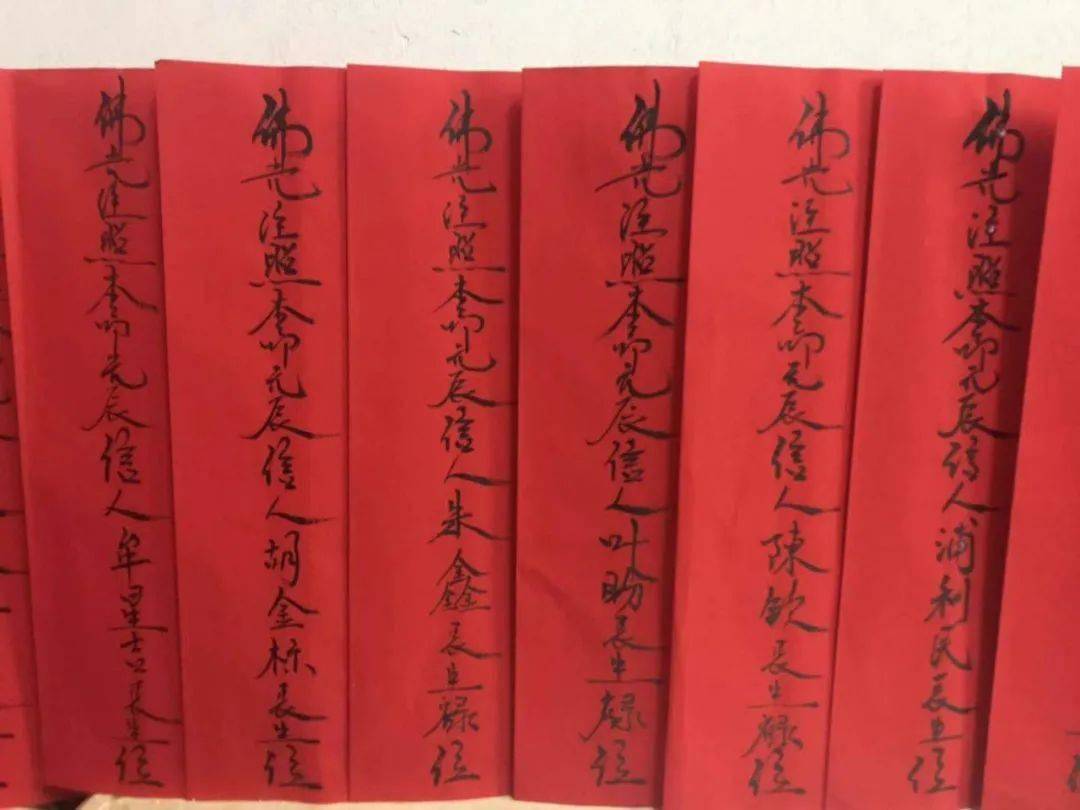 佛光注照本命元辰信人浦利民長生位
佛光注照本命元辰信人陳欽長生祿位
佛光注照本命元辰信人叶盼長生祿位
佛光注照本命元辰信人朱鑫長生祿位
佛光注照本命元辰信人胡金标長生位
佛光注照本命元辰信人牟星吉長生位